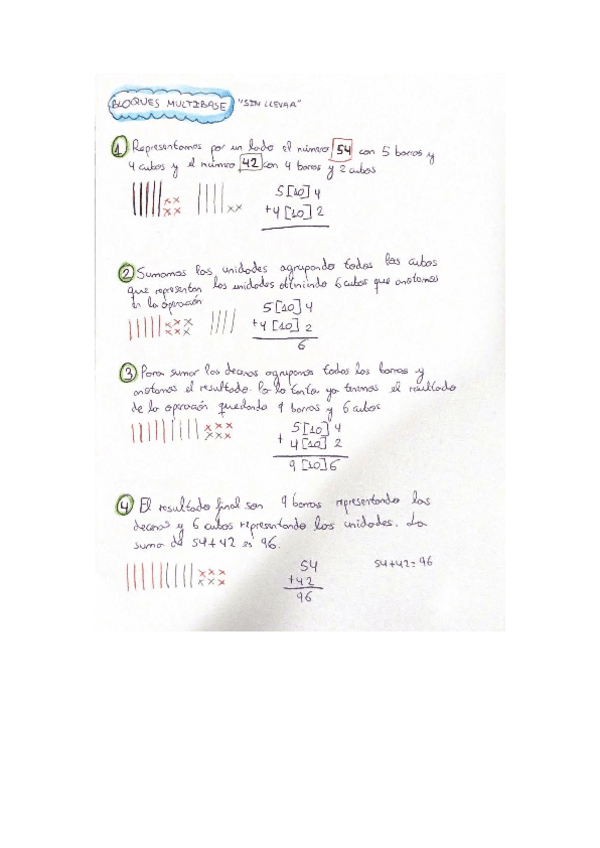 BLOQUES MULTIBASE "SIN LLEVAR"
1 Representamos por un lado el número 54 con 5 barras y
4 cubos y el número 42 con 4 barras y 2 cubos
5 [10] 4
+4 [10] 2
2 Sumamos las unidades agrupando todos los cubos
que representan las unidades obteniendo 6 cubos que anotamos
en la operación
5 [10] 4
+4 [10] 2
6
3 Para sumar las decenas agrupamos todas las barras y
anotamos el resultado. Por lo tanto, ya tenemos el resultado
de la operación quedando 9 barras y 6 cubos
5 [10] 4
+ 4 [10] 2
9 [10] 6
4 El resultado final son 9 barras representando las
decenas y 6 cubos representando las unidades. La
suma de 54+42 es 96.
54
+42
96
54+42=96